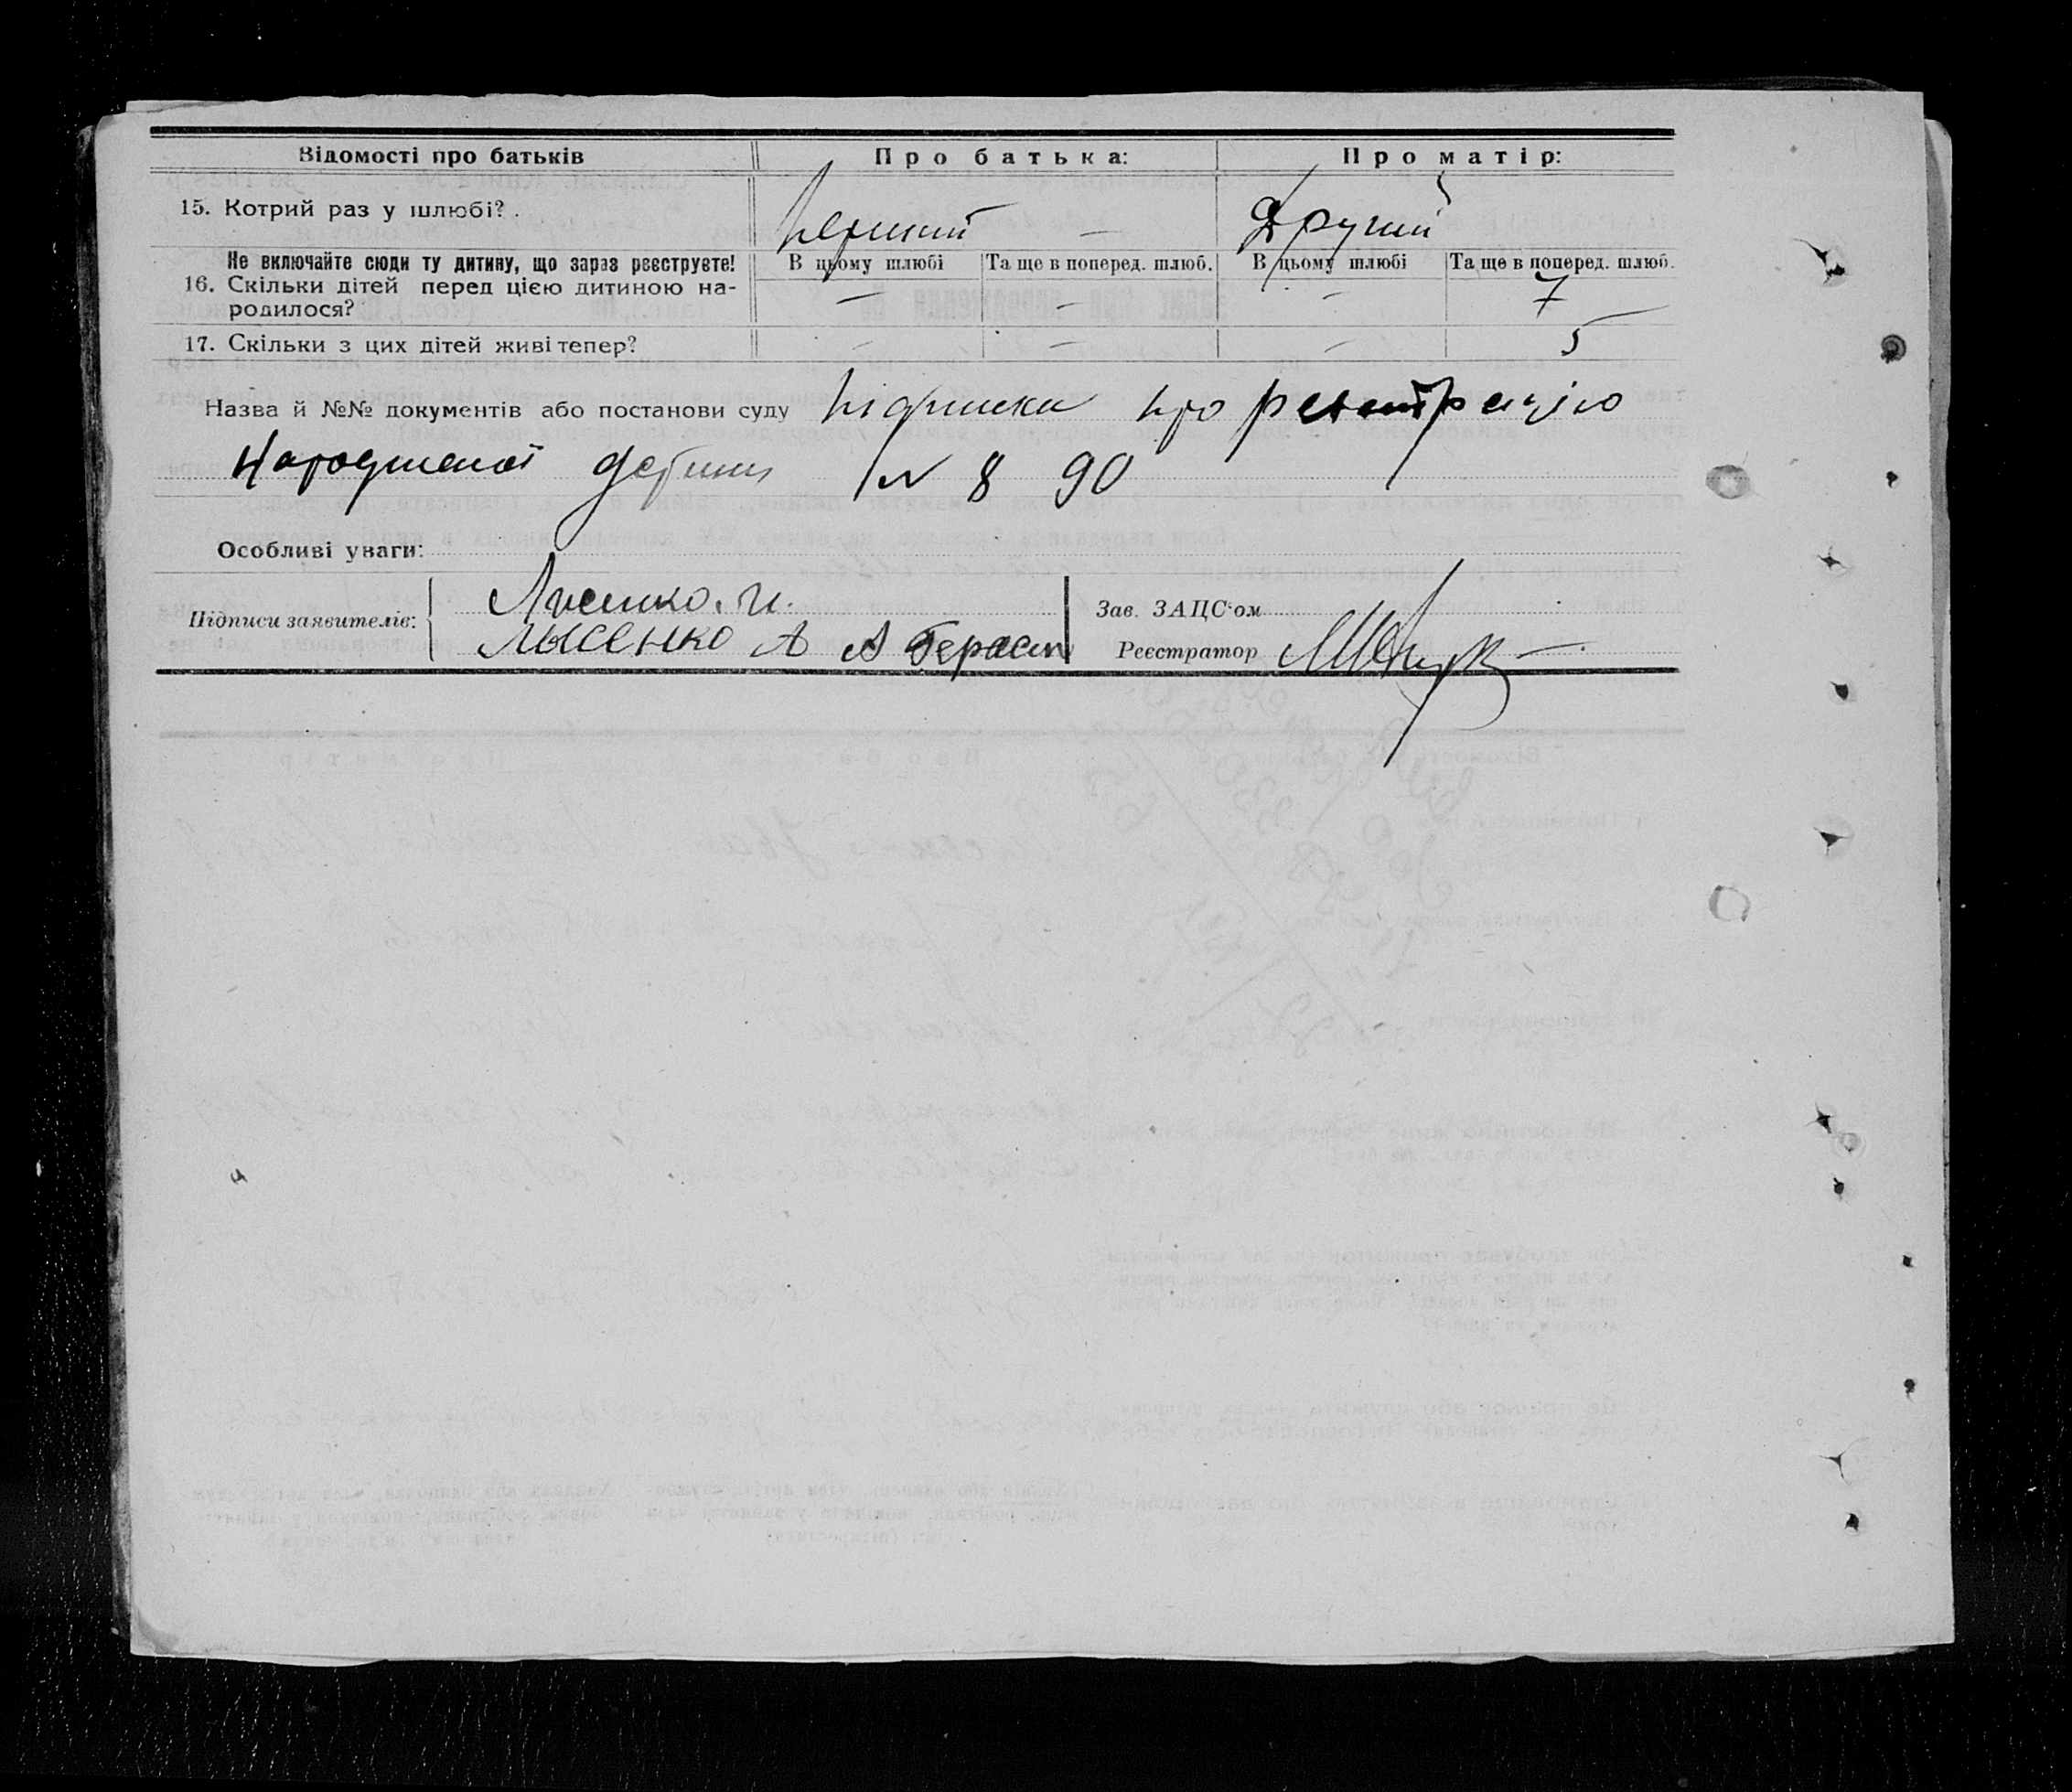 Відомості про батьків Про батька: Про матір:
15. Котрий раз у шлюбі? . Перший — Другий
Не включайте сюди ту дитину, що зараз реєструєте! В цьому шлюбі Та ще в поперед. шлюб. В цьому шлюбі Та ще в поперед. шлюб.
16. Скільки дітей перед цією дитиною на-
родилося? — — — 7
17. Скільки з цих дітей живі тепер? — — — 5
Назва й №№ документів або постанови суду підписка про реєстрацію
народженої дитини № 8 90
Особливі уваги:
Підписи заявителів: Лисенко. И.
Лысенко А А Герасим
Зав. ЗАЦС'ом
Реєстратор